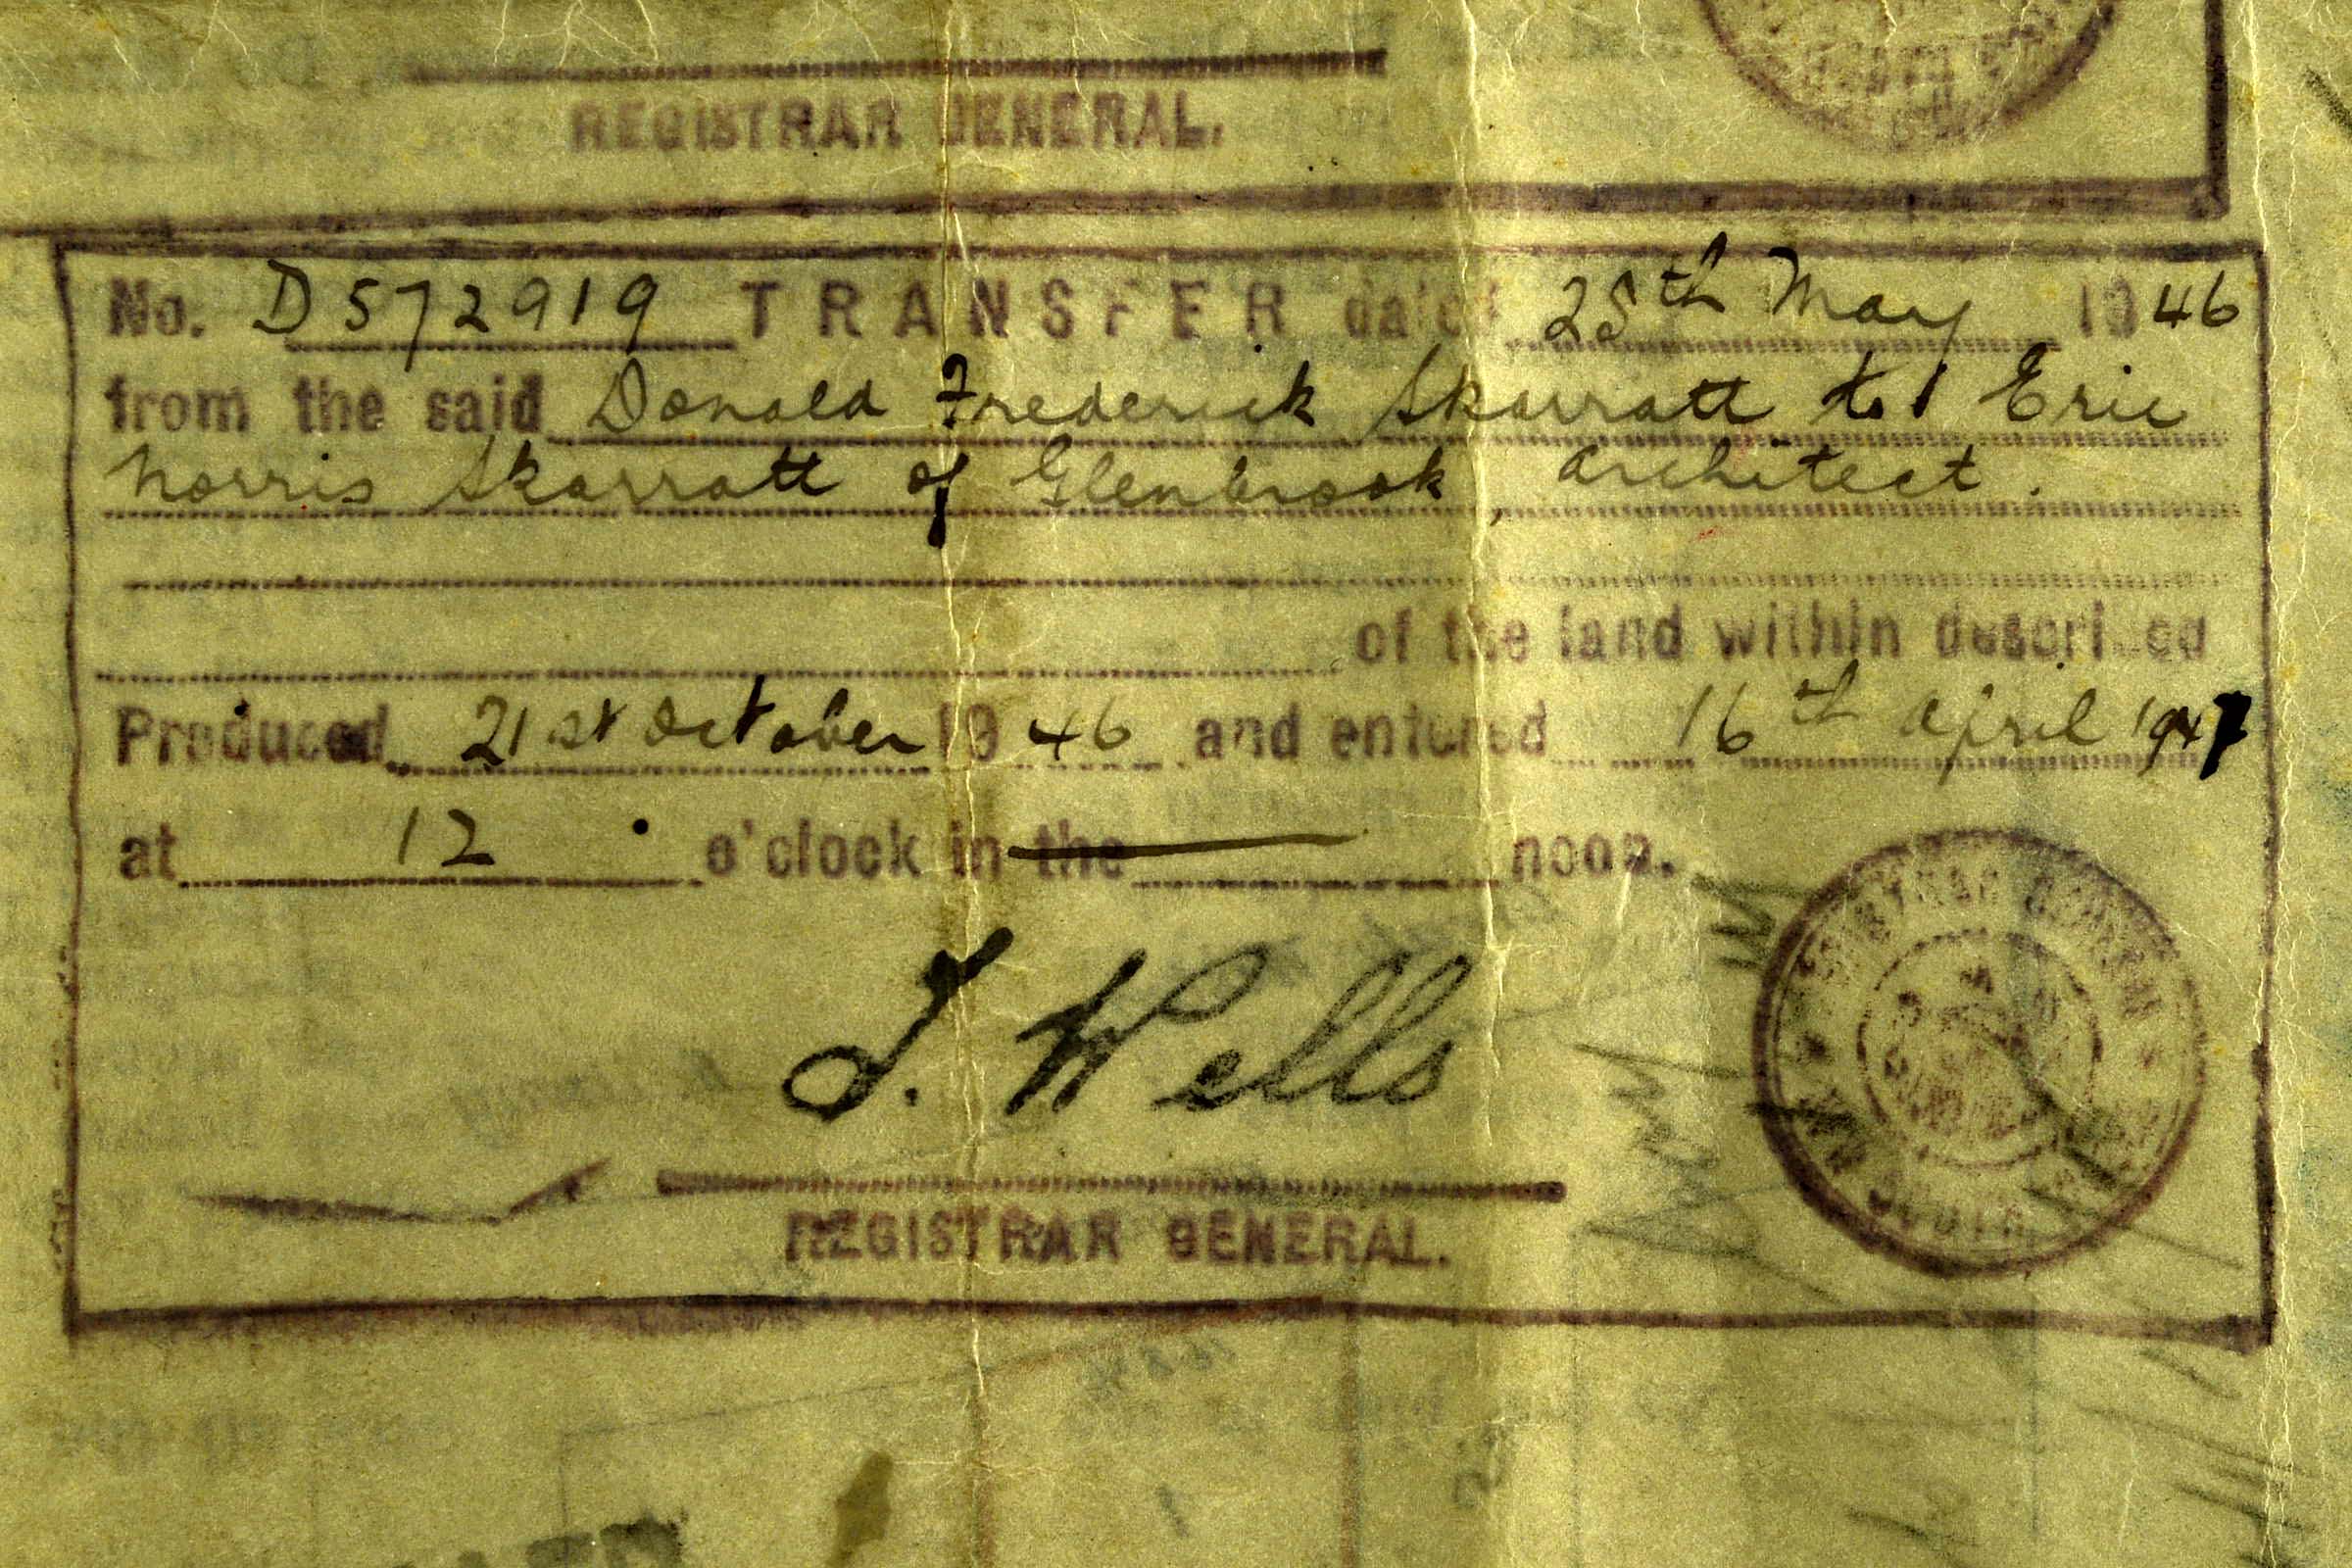 REGISTRAR GENERAL.
No. D572919 TRANSFER dated 28th May 1946
from the said Donald Frederick Skarratt to Eric
Norris Skarratt of Glenbrook, architect.
of the land within described
Produced 21st October 1946 and entered 16th April 1947
at 12 o'clock in the noon.
J. Wells
REGISTRAR GENERAL.
REGISTRAR GENERAL